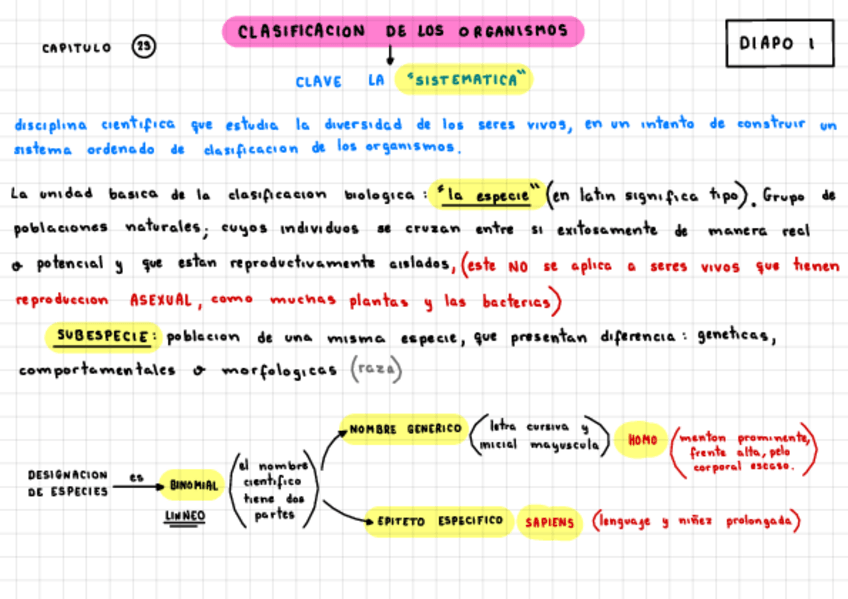 CAPITULO 23
CLASIFICACION DE LOS ORGANISMOS
DIAPO 1
CLAVE LA "SISTEMATICA"
disciplina cientifica que estudia la diversidad de los seres vivos, en un intento de construir un
sistema ordenado de clasificacion de los organismos.
La unidad basica de la clasificacion biologica : "la especie" (en latin significa tipo). Grupo de
poblaciones naturales; cuyos individuos se cruzan entre si exitosamente de manera real
o potencial y que estan reproductivamente aislados, (este NO se aplica a seres vivos que tienen
reproduccion ASEXUAL, como muchas plantas y las bacterias)
SUBESPECIE: poblacion de una misma especie, que presentan diferencia : geneticas,
comportamentales o morfologicas (raza)
DESIGNACION
DE ESPECIES
es
BINOMIAL
LINNEO
(el nombre
cientifico
tiene dos
partes)
NOMBRE GENERICO
(letra cursiva y
inicial mayuscula)
HOMO
(menton prominente,
frente alta, pelo
corporal escaso.)
EPITETO ESPECIFICO
SAPIENS
(lenguaje y niñez prolongada)